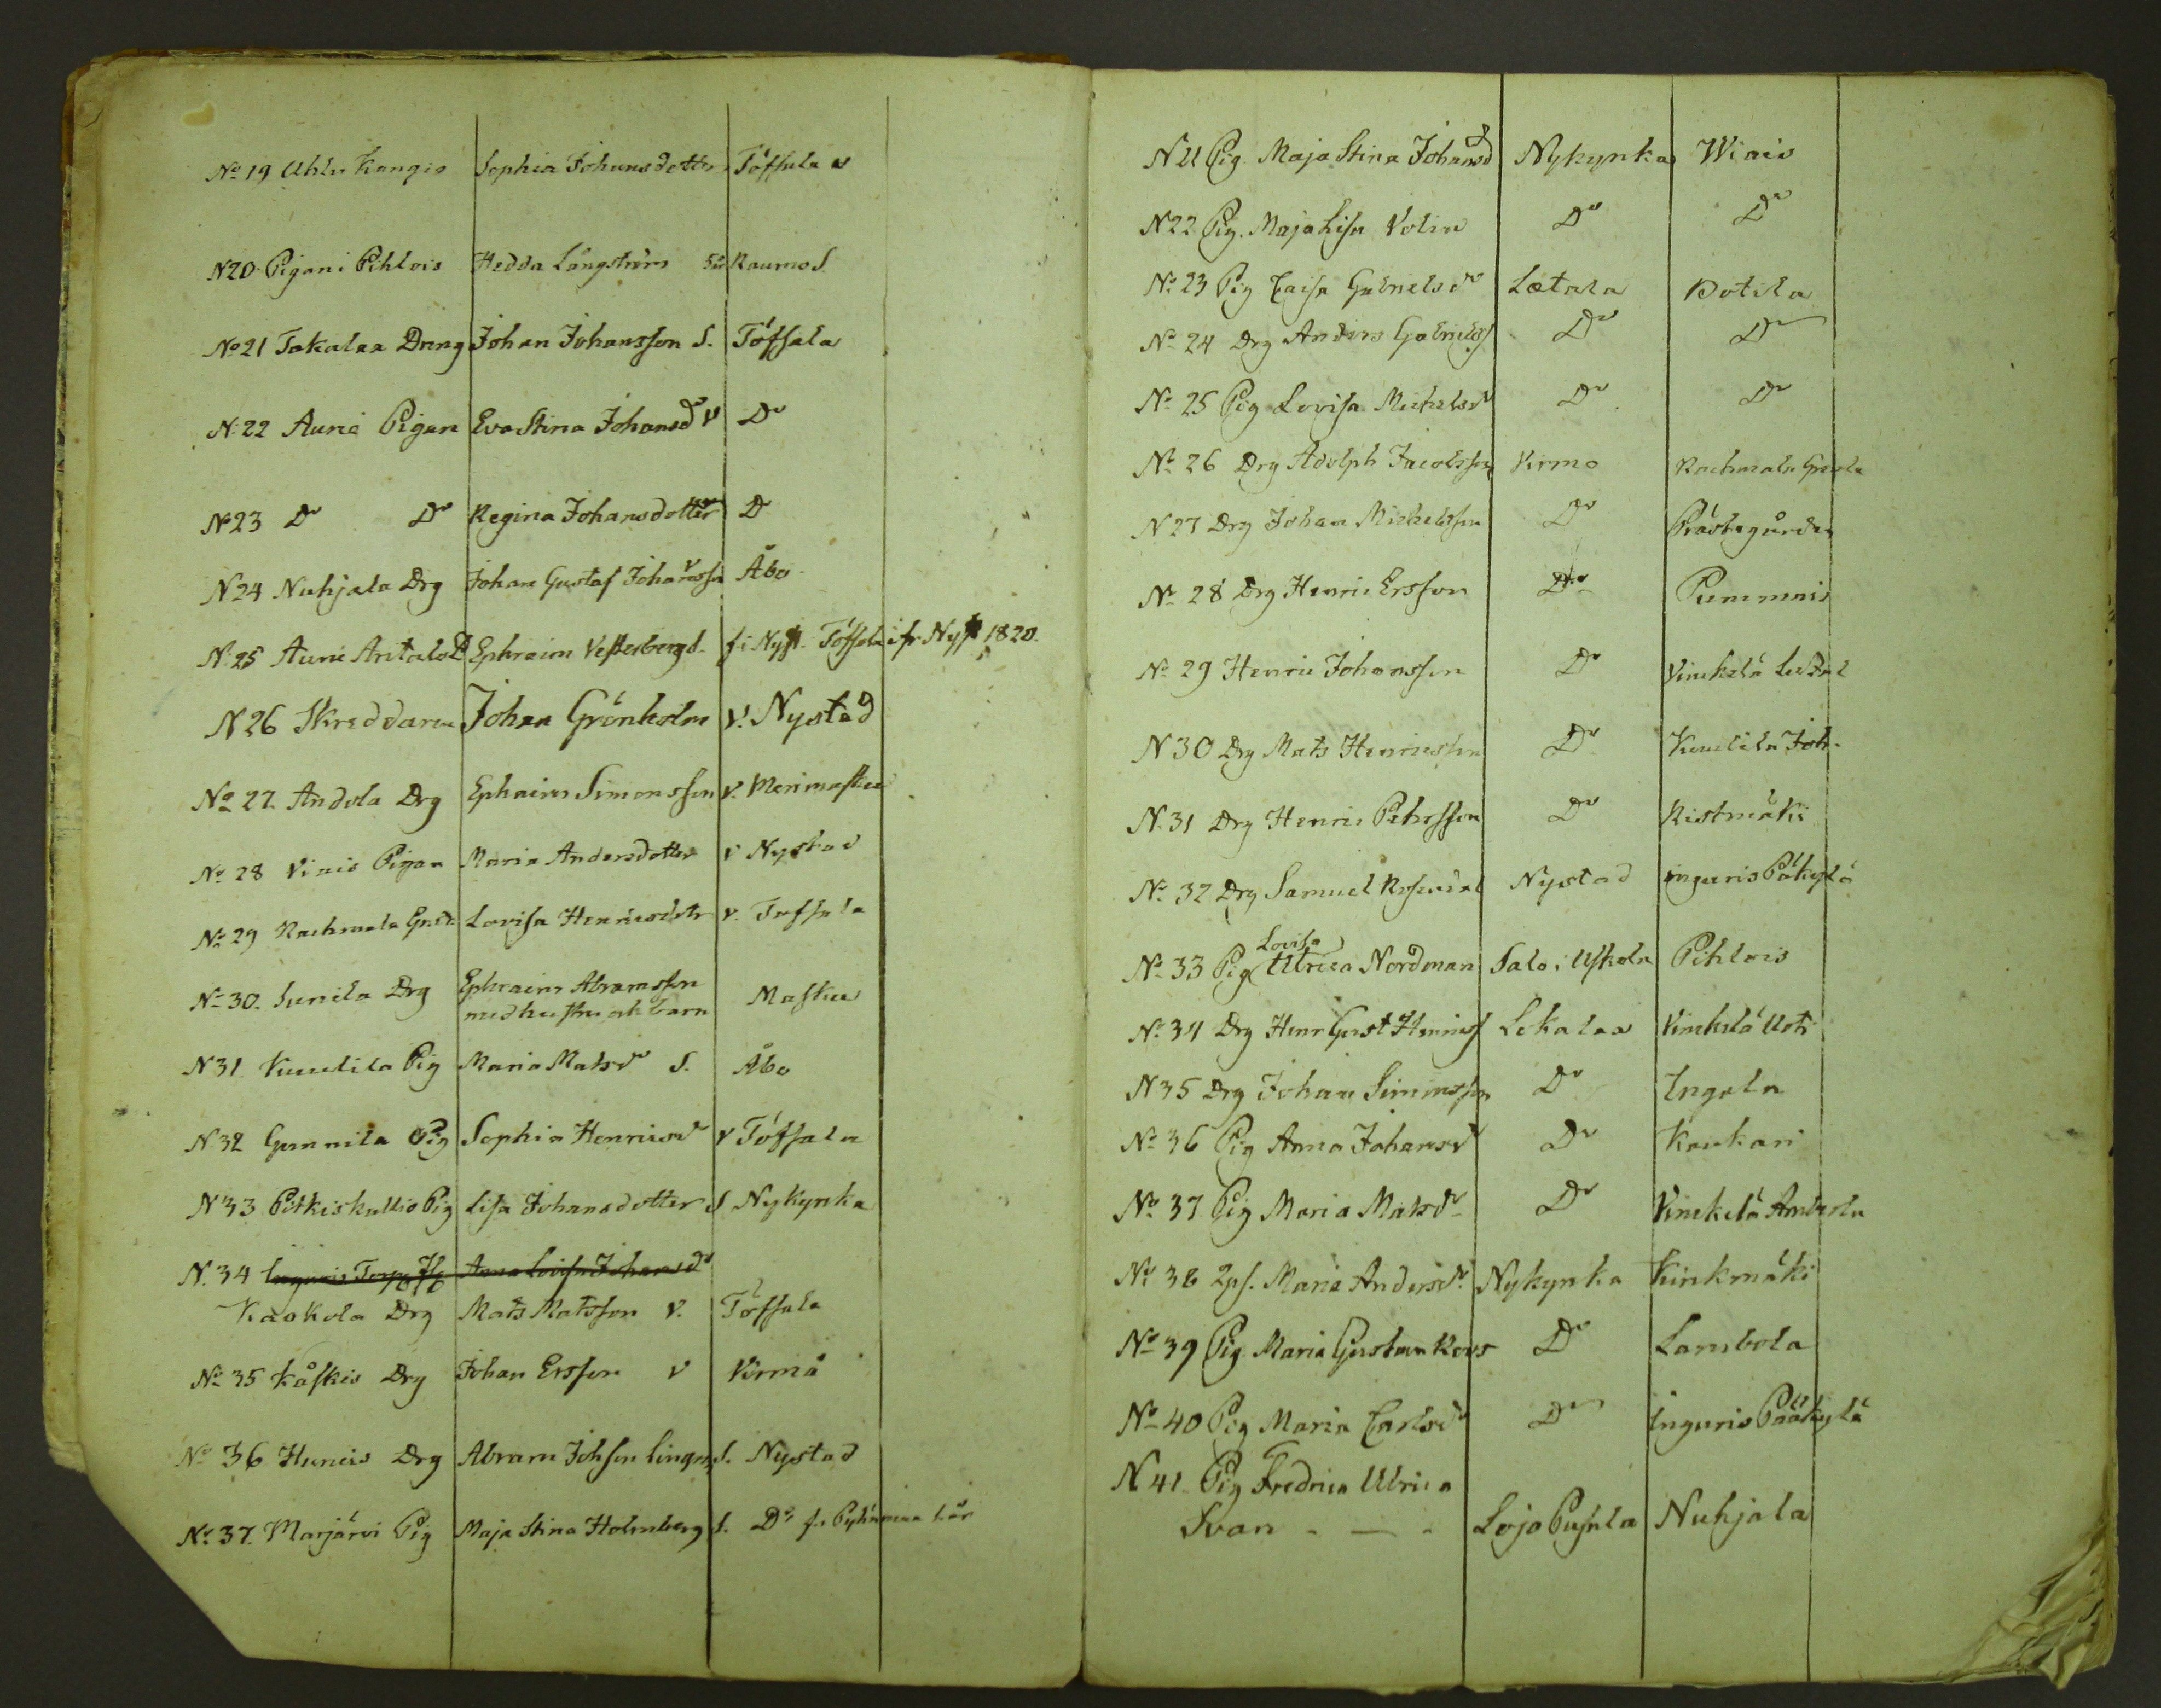 No 19 Uhlu Kangis Sophia Johansdotter Töffsala
N20 Pigan i Pihlois Hedda Långström Raumo S.
No 21 Takalaa Dreng Johan Johansson S. Töfsala
N. 22 Aurie Pigan Eva Stina Johansd v Do
No 23 Do Do Regina Johansdotter D
N 24 Nuhjala Drg Johan Gustaf Johansson Åbo
N. 25 Aurie Antalo D Ephraim Vesterberg S. Töffsala fr Nyst 1820.
N 26 Skreddaren Johan Grönholm v. Nystad
No 27. Andola Drg Ephraim Simonsson v. Merimasku
No 28 Viais Pigan Maria Andersdotter v Nystad
No 29 Rachmala Lovisa Henricsdotr v. Toffsala
No 30. Sunila Drg Ephraim Abramsson
med hustru och barn Masku
N 31 Kuulila Pig Maria Matsdr S. Åbo
N 32 Gunnila Pig Sophia Henricsdr v Töfsala
N 33 Pitkiskallio Pig Lisa Johansdotter S Nykyrka
N. 34 Inguris Torp Anna Lovisa Johansdr
Kaokola Drg Mats Matsson v. Töffsala
No 35 Kåfkis Drg Johan Ersson v Virmå
No 36 Huncis Drg Abram Johsson S. Nystad
No 37. Marjärvi Pig Maja Stina Holmberg S. Do
N 21 Pig. Maja Stina Johansd Nykyrka Wiais
N22 Pig. Maja Lisa Volin Do Do
No 23 Pig Caisa Gabrielsdr Letala Potila
No 24 Drg Anders Gabrielss Do Do
No 25 Pig Lovisa Michelsdr Do Do
No 26 Drg Adolph Jacobsson Virmo Rachmala
N 27 Drg Johan Michelsson Do Prästegården
No 28 Drg Henric Ersson Do Pummnis
No 29 Henric Johansson Do Vinkelä
N 30 Drg Mats Henricsson Do Kuulila Joh.
N. 31 Drg Henric Pehrsson Do Ristmäki
No 32 Drg Samuel Nystad Inguris Päkylä
Lovisa
No 33 Pig Ulrica Nordman Salo i Uskela Pihlois
No 34 Drg Henr Gust Henricss Lokalax Vinkelä Uoti
N 35 Drg Johan Simonsson Do Ingola
No 36 Pig Anna Johansdr Do Koukari
No 37 Pig Maria Matsdr Do Vinkelä
No 38 Maria Andersdr. Nykyrka Kinkmäki
No 39 Pig Maria Gustava Do Lambola
No 40 Pig Maria Carlsdr Do Inguris Pääkylä
N 41. Pig Fredrica Ulrica
Svan - - - Lojo Pusula Nuhjala